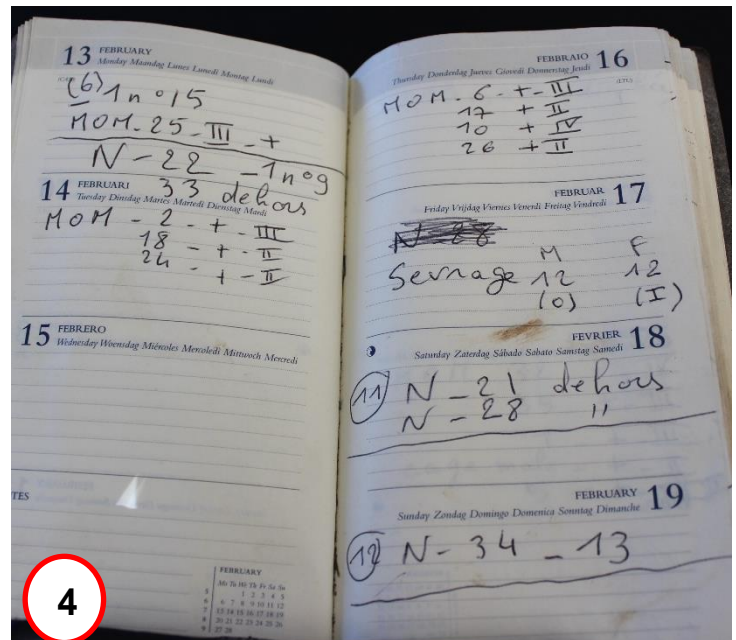 13 FEBRUARY
Monday Maandag Lunes Lunedì Montag Lundi
(6) 1 n° 15
MOM - 25 - III - +
N - 22 - 1 n° 9
33 dehors
14 FEBRUARI
Tuesday Dinsdag Martes Martedì Dienstag Mardi
MOM - 2 - + - III
18 - + - II
24 - + - II
15 FEBRERO
Wednesday Woensdag Miércoles Mercoledì Mittwoch Mercredi
TES
FEBRUARY
Mo Tu We Th Fr Sa Su
5 1 2 3 4 5
6 6 7 8 9 10 11 12
7 13 14 15 16 17 18 19
8 20 21 22 23 24 25 26
9 27 28
4
FEBBRAIO 16
Thursday Donderdag Jueves Giovedì Donnerstag Jeudi
MOM - 6 - + - III
17 + II
10 + IV
26 + II
FEBRUAR 17
Friday Vrijdag Viernes Venerdì Freitag Vendredi
N - 28
M F
Sevrage 12 12
(0) (I)
FEVRIER 18
Saturday Zaterdag Sábado Sabato Samstag Samedi
(11) N - 21 dehors
N - 28 "
FEBRUARY 19
Sunday Zondag Domingo Domenica Sonntag Dimanche
(12) N - 34 - 13